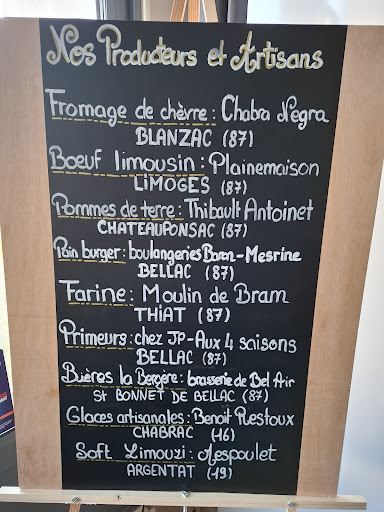 Nos Producteurs et Artisans
Fromage de chèvre : Chabra Negra
BLANZAC (87)
Boeuf limousin : Plainemaison
LIMOGES (87)
Pommes de terre : Thibault Antoinet
CHATEAUPONSAC (87)
Pain burger : boulangeries Baren-Mesrine
BELLAC (87)
Farine : Moulin de Bram
THIAT (87)
Primeurs : chez JP-Aux 4 saisons
BELLAC (87)
Bières la Bergère : brasserie de Bel Air
St BONNET DE BELLAC (87)
Glaces artisanales : Benoit Restoux
CHABRAC (16)
Soft Limouzi : Mespoulet
ARGENTAT (19)